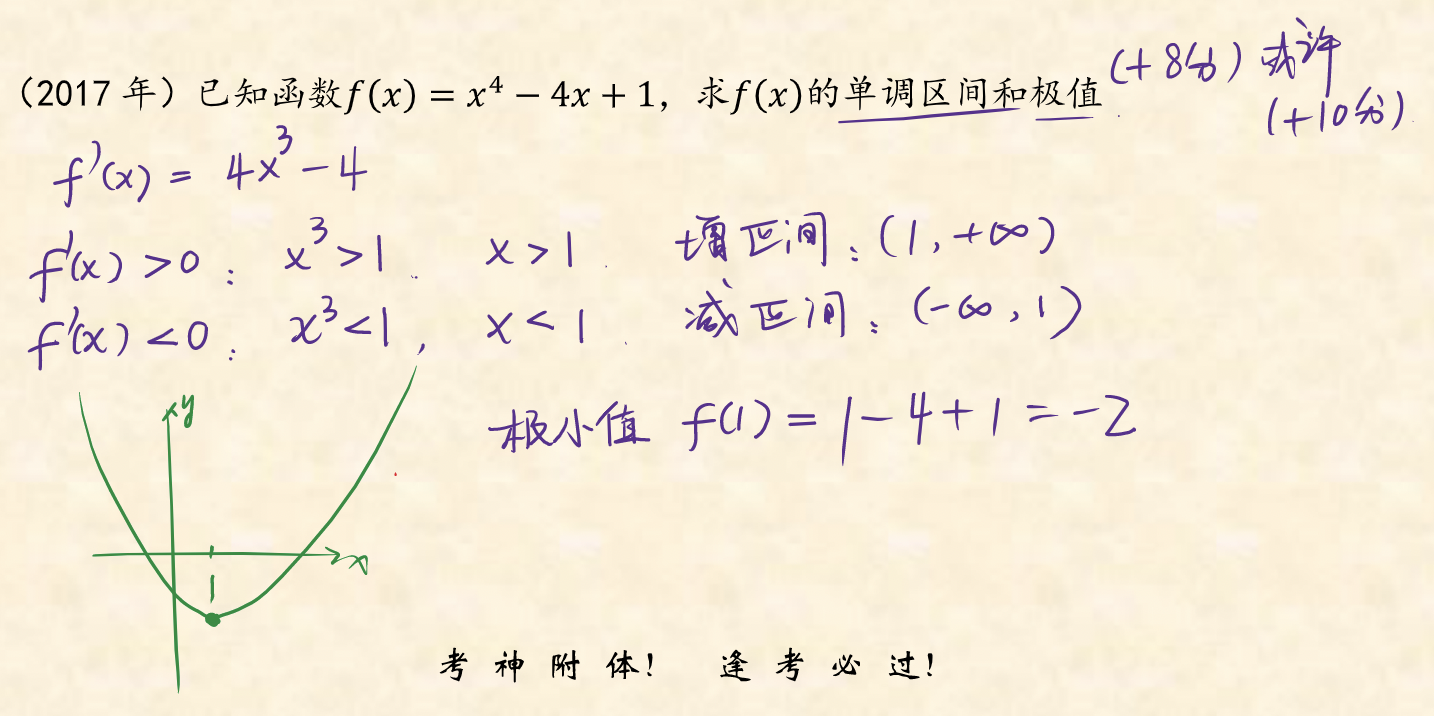 （2017 年）已知函数f(x) = x⁴ − 4x + 1，求f(x)的单调区间和极值 (+8分) 或许
(+10分)
f'(x) = 4x³ − 4
f'(x) > 0 : x³ > 1 . x > 1 . 增区间 : (1, +∞)
f'(x) < 0 : x³ < 1 , x < 1 . 减区间 : (−∞, 1)
极小值 f(1) = 1 − 4 + 1 = −2
y
x
1
考 神 附 体！ 逢 考 必 过！